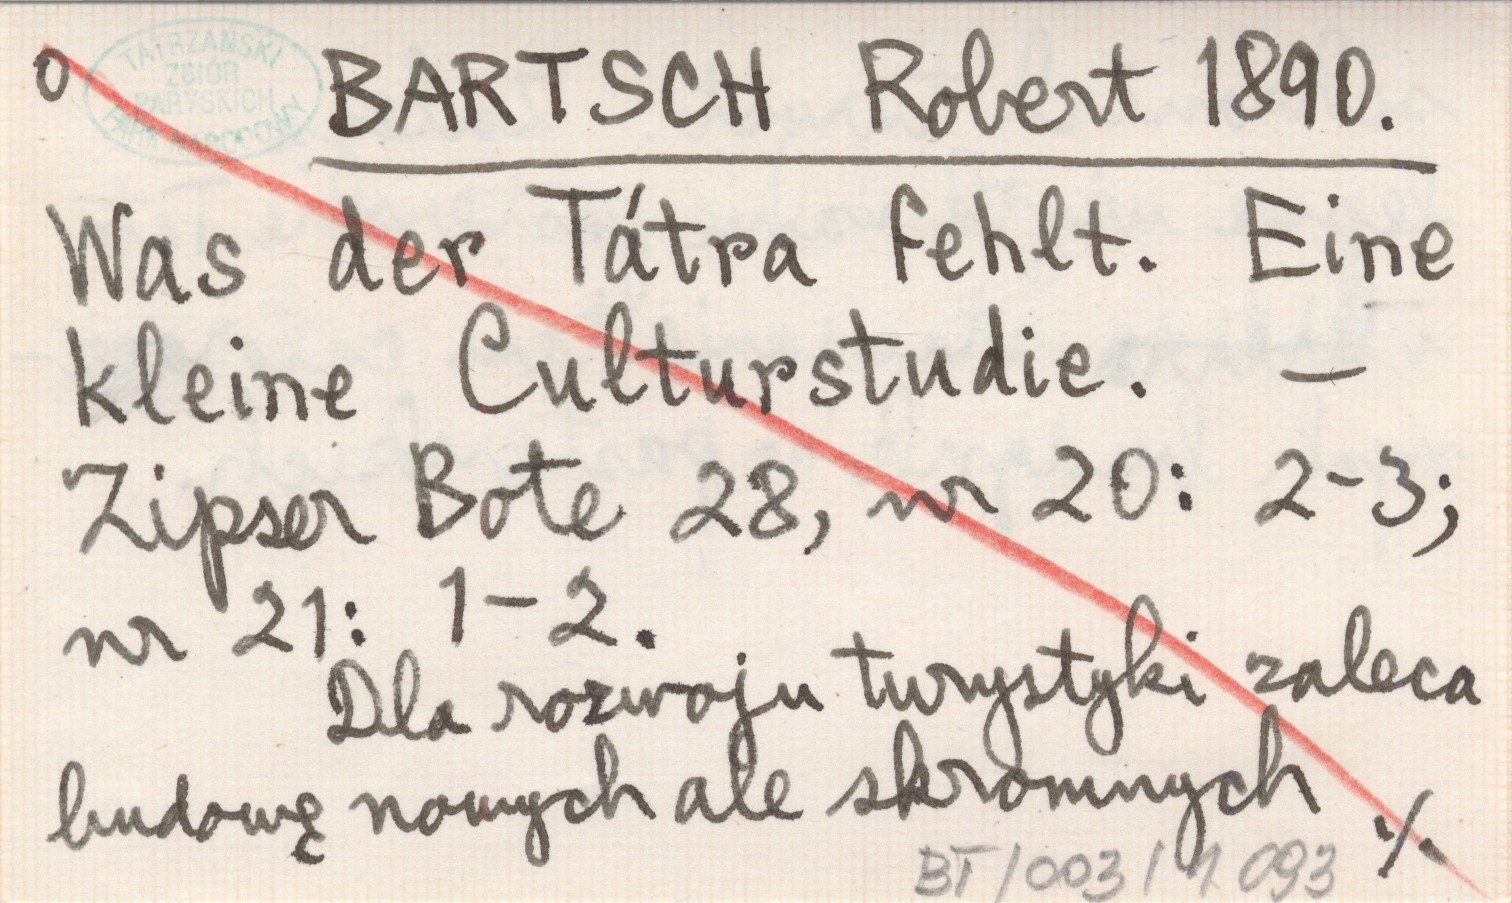 O
TATRZAŃSKI
ZBIÓR
PARYSKICH
PARK NARODOWY
BARTSCH Robert 1890.
Was der Tátra fehlt. Eine
kleine Culturstudie. –
Zipser Bote 28, nr 20: 2-3;
nr 21: 1-2.
Dla rozwoju turystyki zaleca
budowę nowych ale skromnych
./.
BT/003/1093